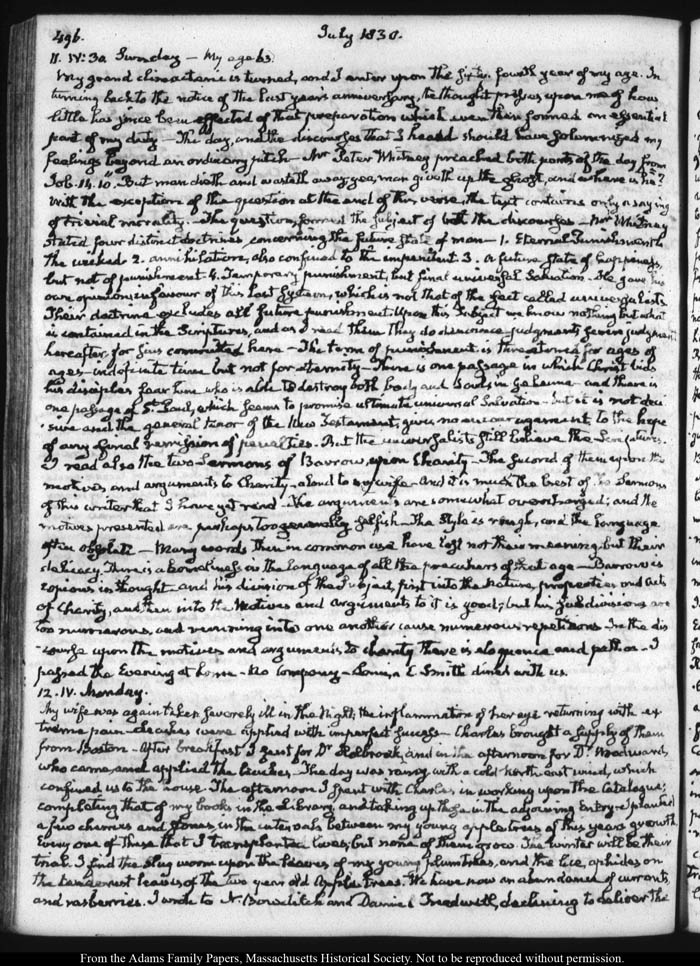 496.
July 1830.
11. IV:30 Sunday — My age 63.
My grand climacteric is turned, and I enter upon the sixty fourth year of my age. In
turning back to the notice of the last year's anniversary, the thought presses upon me of how
little has since been effected of that preparation which even then formed an essential
part of my duty — The day, and the discourses that I heard should have solemnized my
feelings beyond an ordinary pitch — Mr Peter Whitney preached both parts of the day from
Job. 14.10. But man dieth and wasteth away, yea, man giveth up the ghost, and where is he?
With the exception of the question at the end of this verse, the text contains only a saying
of trivial morality. — The question, formed the subject of both the discourses — Mr Whitney
stated four distinct doctrines concerning the future state of man — 1. Eternal Punishment to
the wicked 2. annihilation, also confined to the impenitent 3. a future state of happiness,
but not of punishment 4. Temporary punishment, but final universal Salvation — He gave his
own opinion in favour of this last system, which is not that of the sect called universalists
Their doctrine excludes all future punishment. Upon this subject we know nothing but what
is contained in the Scriptures, and as I read them they do denounce judgment, severe judgment
hereafter for sins committed here — The term of punishment is threatened for ages of
ages — indefinite time but not for eternity — There is one passage in which Christ bids
his disciples fear him who is able to destroy both body and Soul, in Gehenna — and there is
one passage of St. Paul, which seems to promise ultimate universal Salvation — but it is not deci
-sive and the general tenor of the New Testament, gives no encouragement to the hope
of any final remission of penalties. But the universalists still believe the Scriptures.
I read also the two Sermons of Barrow, upon Charity — The second of them upon the
motives and arguments to Charity — aloud to my wife — And it is much the best of the Sermons
of this writer that I have yet read — The arguments are somewhat overcharged; and the
motives presented are perhaps too generally selfish — The Style is rough, and the language
often obsolete — Many words then in common use have lost not their meaning but their
delicacy. There is a homeliness in the language of all the preachers of that age — Barrow is
copious in thought — and his division of the Subject, first into the nature, properties and acts
of Charity, and then into the Motives and arguments to it is good; but his subdivisions are
too numerous, and running into one another cause numerous repetitions. In the dis
-course upon the motives and arguments to charity there is eloquence and pathos. — I
passed the Evening at home — No company — Louisa C. Smith dined with us.
12. IV. Monday.
My wife was again taken severely ill in the Night; the inflammation of her eye returning with ex
treme pain — Leaches were applied with imperfect success — Charles brought a supply of them
from Boston — After breakfast I sent for Dr Holbrook, and in the afternoon for Dr. Woodward,
who came, and applied the leaches — The day was rainy with a cold North-east wind, which
confined us to the house. The afternoon I spent with Charles in working upon the Catalogue;
completing that of my books in the Library, and taking up those in the adjoining Entry — I planted
a few cherries and stones, in the intervals between my young apple trees of this years growth
Every one of those that I transplanted lives; but none of them grow. The winter will be their
trial. I find the slug worm upon the leaves of my young plumtrees, and the lice, aphides on
the tenderest leaves of the two year old Apple trees. We have now an abundance of currants,
and rasberries. I wrote to N. Bowditch and Daniel Treadwell, declining to deliver the
From the Adams Family Papers, Massachusetts Historical Society. Not to be reproduced without permission.